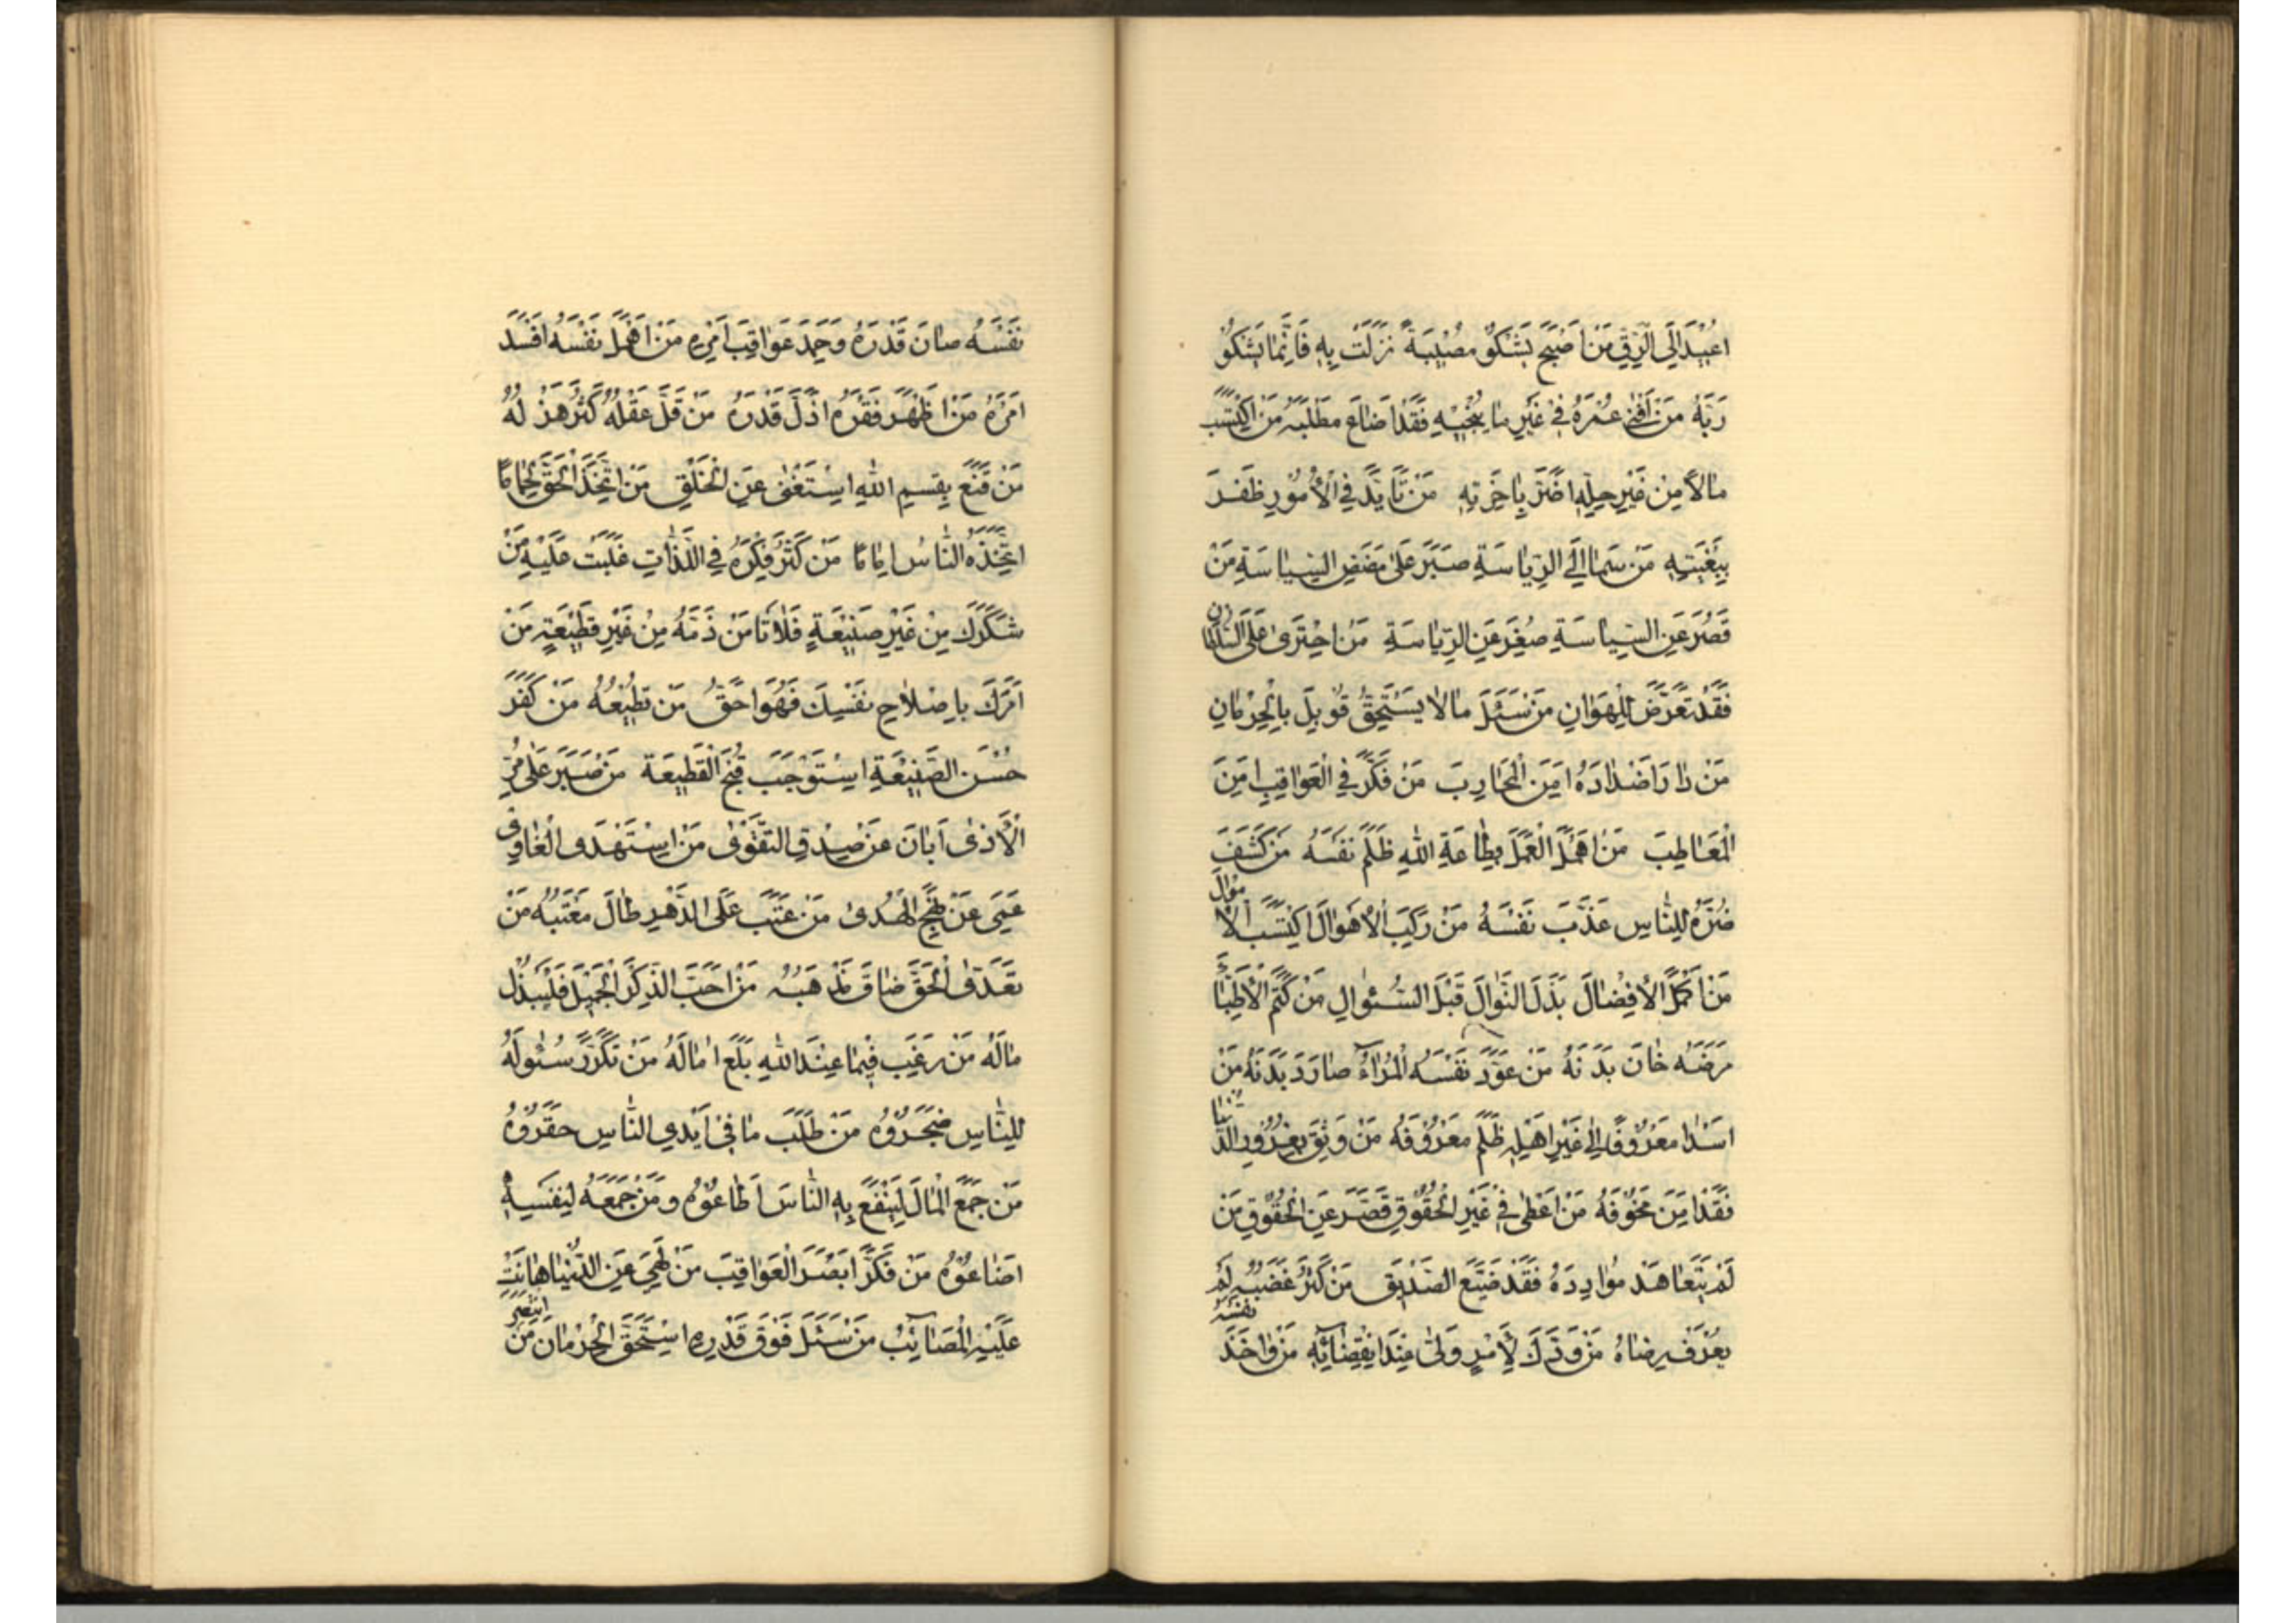 اُعِيْدَ اِلَى الرِّقِّ مَنْ اَصْبَحَ يَشْكُوْ مُصِيْبَةً نَزَلَتْ بِهٖ فَاِنَّمَا يَشْكُوْ
رَبَّهُ مَنْ اَفْنٰى عُمْرَهُ فِيْ غَيْرِ مَا يُنْجِيْهِ فَقَدْ اَضَاعَ مَطْلَبَهُ مَنِ اكْتَسَبَ
مَالًا مِنْ غَيْرِ حِلِّهٖ اَضَرَّ بِاٰخِرَتِهٖ مَنْ تَاَيَّدَ فِي الْاُمُوْرِ ظَفَرَ
بِبُغْيَتِهٖ مَنْ سَمَا اِلَى الرِّيَاسَةِ صَبَرَ عَلٰى مَضَضِ السِّيَاسَةِ مَنْ
قَصُرَ عَنِ السِّيَاسَةِ صَغُرَ عَنِ الرِّيَاسَةِ مَنِ اجْتَرٰى عَلَى السُّلْطَانِ
فَقَدْ تَعَرَّضَ لِلْهَوَانِ مَنْ سَئَلَ مَا لَا يَسْتَحِقُّ قُوْبِلَ بِالْحِرْمَانِ
مَنْ دَارَا اَضْدَادَهُ اَمِنَ الْمَحَارِبَ مَنْ فَكَّرَ فِي الْعَوَاقِبِ اَمِنَ
الْمَعَاطِبَ مَنْ اَهْمَلَ الْعَمَلَ بِطَاعَةِ اللهِ ظَلَمَ نَفْسَهُ مَنْ كَشَفَ
ضُرَّهُ لِلنَّاسِ عَذَّبَ نَفْسَهُ مَنْ رَكِبَ الْاَهْوَالَ اكْتَسَبَ الْاَمْوَالَ
مَنْ اَكْمَلَ الْاِفْضَالَ بَذَلَ النَّوَالَ قَبْلَ السُّئْوَالِ مَنْ كَتَمَ الْاَطِبَّاءَ
مَرَضَهُ خَانَ بَدَنَهُ مَنْ عَوَّدَ نَفْسَهُ الْمِرَاءَ صَارَ دَيْدَنَهُ مَنْ
اَسْدَا مَعْرُوْفًا اِلٰى غَيْرِ اَهْلِهٖ ظَلَمَ مَعْرُوْفَهُ مَنْ وَثِقَ بِغُرُوْرِ الدُّنْيَا
فَقَدْ اَمِنَ مَخُوْفَهُ مَنْ اَعْطٰى فِيْ غَيْرِ الْحُقُوْقِ قَصَّرَ عَنِ الْحُقُوْقِ مَنْ
لَمْ يَتَعَاهَدْ مُوَادِدَهُ فَقَدْ ضَيَّعَ الصَّدِيْقَ مَنْ كَثُرَ غَضَبُهُ لَمْ
يُعْرَفْ رِضَاهُ مَنْ وَدَّكَ لِاَمْرٍ وَلّٰى عِنْدَ انْقِضَائِهٖ مَنْ وَاخَذَ نَفْسَهُ
نَفْسَهُ صَانَ قَدْرَهُ وَحَمِدَ عَوَاقِبَ اَمْرِهِ مَنْ اَهْمَلَ نَفْسَهُ اَفْسَدَ
اَمْرَهُ مَنْ اَظْهَرَ فَقْرَهُ اَذَلَّ قَدْرَهُ مَنْ قَلَّ عَقْلُهُ كَثُرَ هَزْلُهُ
مَنْ قَنَعَ بِقِسَمِ اللهِ اسْتَغْنٰى عَنِ الْخَلْقِ مَنِ اتَّخَذَ الْحَقَّ لِجَامًا
اتَّخَذَهُ النَّاسُ اِمَامًا مَنْ كَثُرَ فِكْرُهُ فِي اللَّذَّاتِ غَلَبَتْ عَلَيْهِ مَنْ
شَكَرَكَ مِنْ غَيْرِ صَنِيْعَةٍ فَلَا تَاْمَنْ ذَمَّهُ مِنْ غَيْرِ قَطِيْعَةٍ مَنْ
اَمَرَكَ بِاِصْلَاحِ نَفْسِكَ فَهُوَ اَحَقُّ مَنْ تُطِيْعُهُ مَنْ كَفَرَ
حُسْنَ الصَّنِيْعَةِ اسْتَوْجَبَ قُبْحَ الْقَطِيْعَةِ مَنْ صَبَرَ عَلٰى مُرِّ
الْاَذٰى اَبَانَ عَنْ صِدْقِ التَّقْوٰى مَنِ اسْتَهْدَى الْغَاوِيَ
عَمِيَ عَنْ نَهْجِ الْهُدٰى مَنْ عَتَبَ عَلَى الدَّهْرِ طَالَ مَعْتَبُهُ مَنْ
تَعَدَّى الْحَقَّ ضَاقَ مَذْهَبُهُ مَنْ اَحَبَّ الذِّكْرَ الْجَمِيْلَ فَلْيَبْذُلْ
مَالَهُ مَنْ رَغِبَ فِيْمَا عِنْدَ اللهِ بَلَغَ اٰمَالَهُ مَنْ تَكَرَّرَ سُئْوَلُهُ
لِلنَّاسِ ضَجَرُوْهُ مَنْ طَلَبَ مَا فِيْ اَيْدِي النَّاسِ حَقَّرُوْهُ
مَنْ جَمَعَ الْمَالَ لِيَنْفَعَ بِهِ النَّاسَ اَطَاعُوْهُ وَ مَنْ جَمَعَهُ لِنَفْسِهٖ
اَضَاعُوْهُ مَنْ فَكَّرَ اَبْصَرَ الْعَوَاقِبَ مَنْ لَهِيَ عَنِ الدُّنْيَا هَانَتْ
عَلَيْهِ الْمَصَائِبُ مَنْ سَئَلَ فَوْقَ قَدْرِهِ اسْتَحَقَّ الْحِرْمَانَ مَنْ